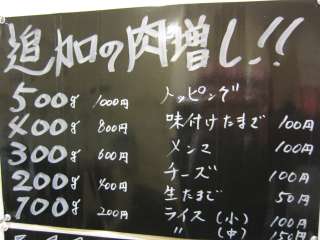 追加の肉増し!!
500g 1000円
400g 800円
300g 600円
200g 400円
100g 200円
トッピング
味付けたまご 100円
メンマ 100円
チーズ 100円
生たまご 50円
ライス(小) 100円
〃 (中) 150円